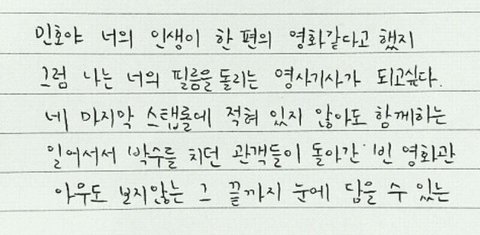 민호야 너의 인생이 한 편의 영화같다고 했지
그럼 나는 너의 필름을 돌리는 영사기사가 되고싶다.
네 마지막 스탭롤에 적혀 있지 않아도 함께하는
일어서서 박수를 치던 관객들이 돌아간 빈 영화관
아무도 보지않는 그 끝까지 눈에 담을 수 있는